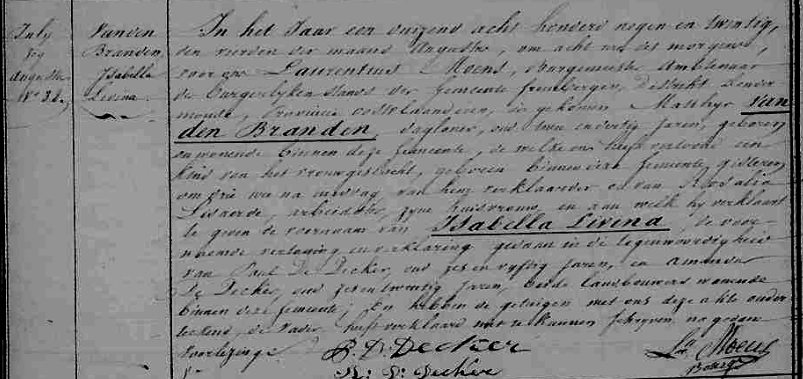 July
Augusti
N° 32.
Vanden
Branden
Isabella
Livina
In het Jaar een duizend acht honderd negen en twintig,
den vierden der maand Augusti, om acht uren des morgens,
voor ons Laurentius Moens, Burgemeester Ambtenaar
der burgerlyken stands der gemeente Grembergen, District Dender
monde, Provincie Oostvlaanderen, is gekomen Matthys Van
den Branden, dagloner, oud twee en dertig jaren, geboren
en wonende binnen deze gemeente, de welke ons heeft vertoond een
kind van het vrouwgeslacht, geboren binnen deze gemeente, gisteren
om drie uren na middag van hem verklaarder en van Rosalia
arbeidster, zyne huisvrouw, en aan welk hy verklaart
te geven de voornaam van Isabella Livina, de voor-
noemde vertoning en verklaring gedaan in de tegenwoordigheid
van Paul De Decker, oud zes en vyftig jaren, en Amandus
De Decker, oud zes en twintig jaren, beide landbouwers wonende
binnen deze gemeente; En hebben de getuigen met ons deze akte onder
teekend, de vader heeft verklaard niet te kunnen schryven na gedane
voorlezinge
P. D. Decker
De Decker
Moens
Burg